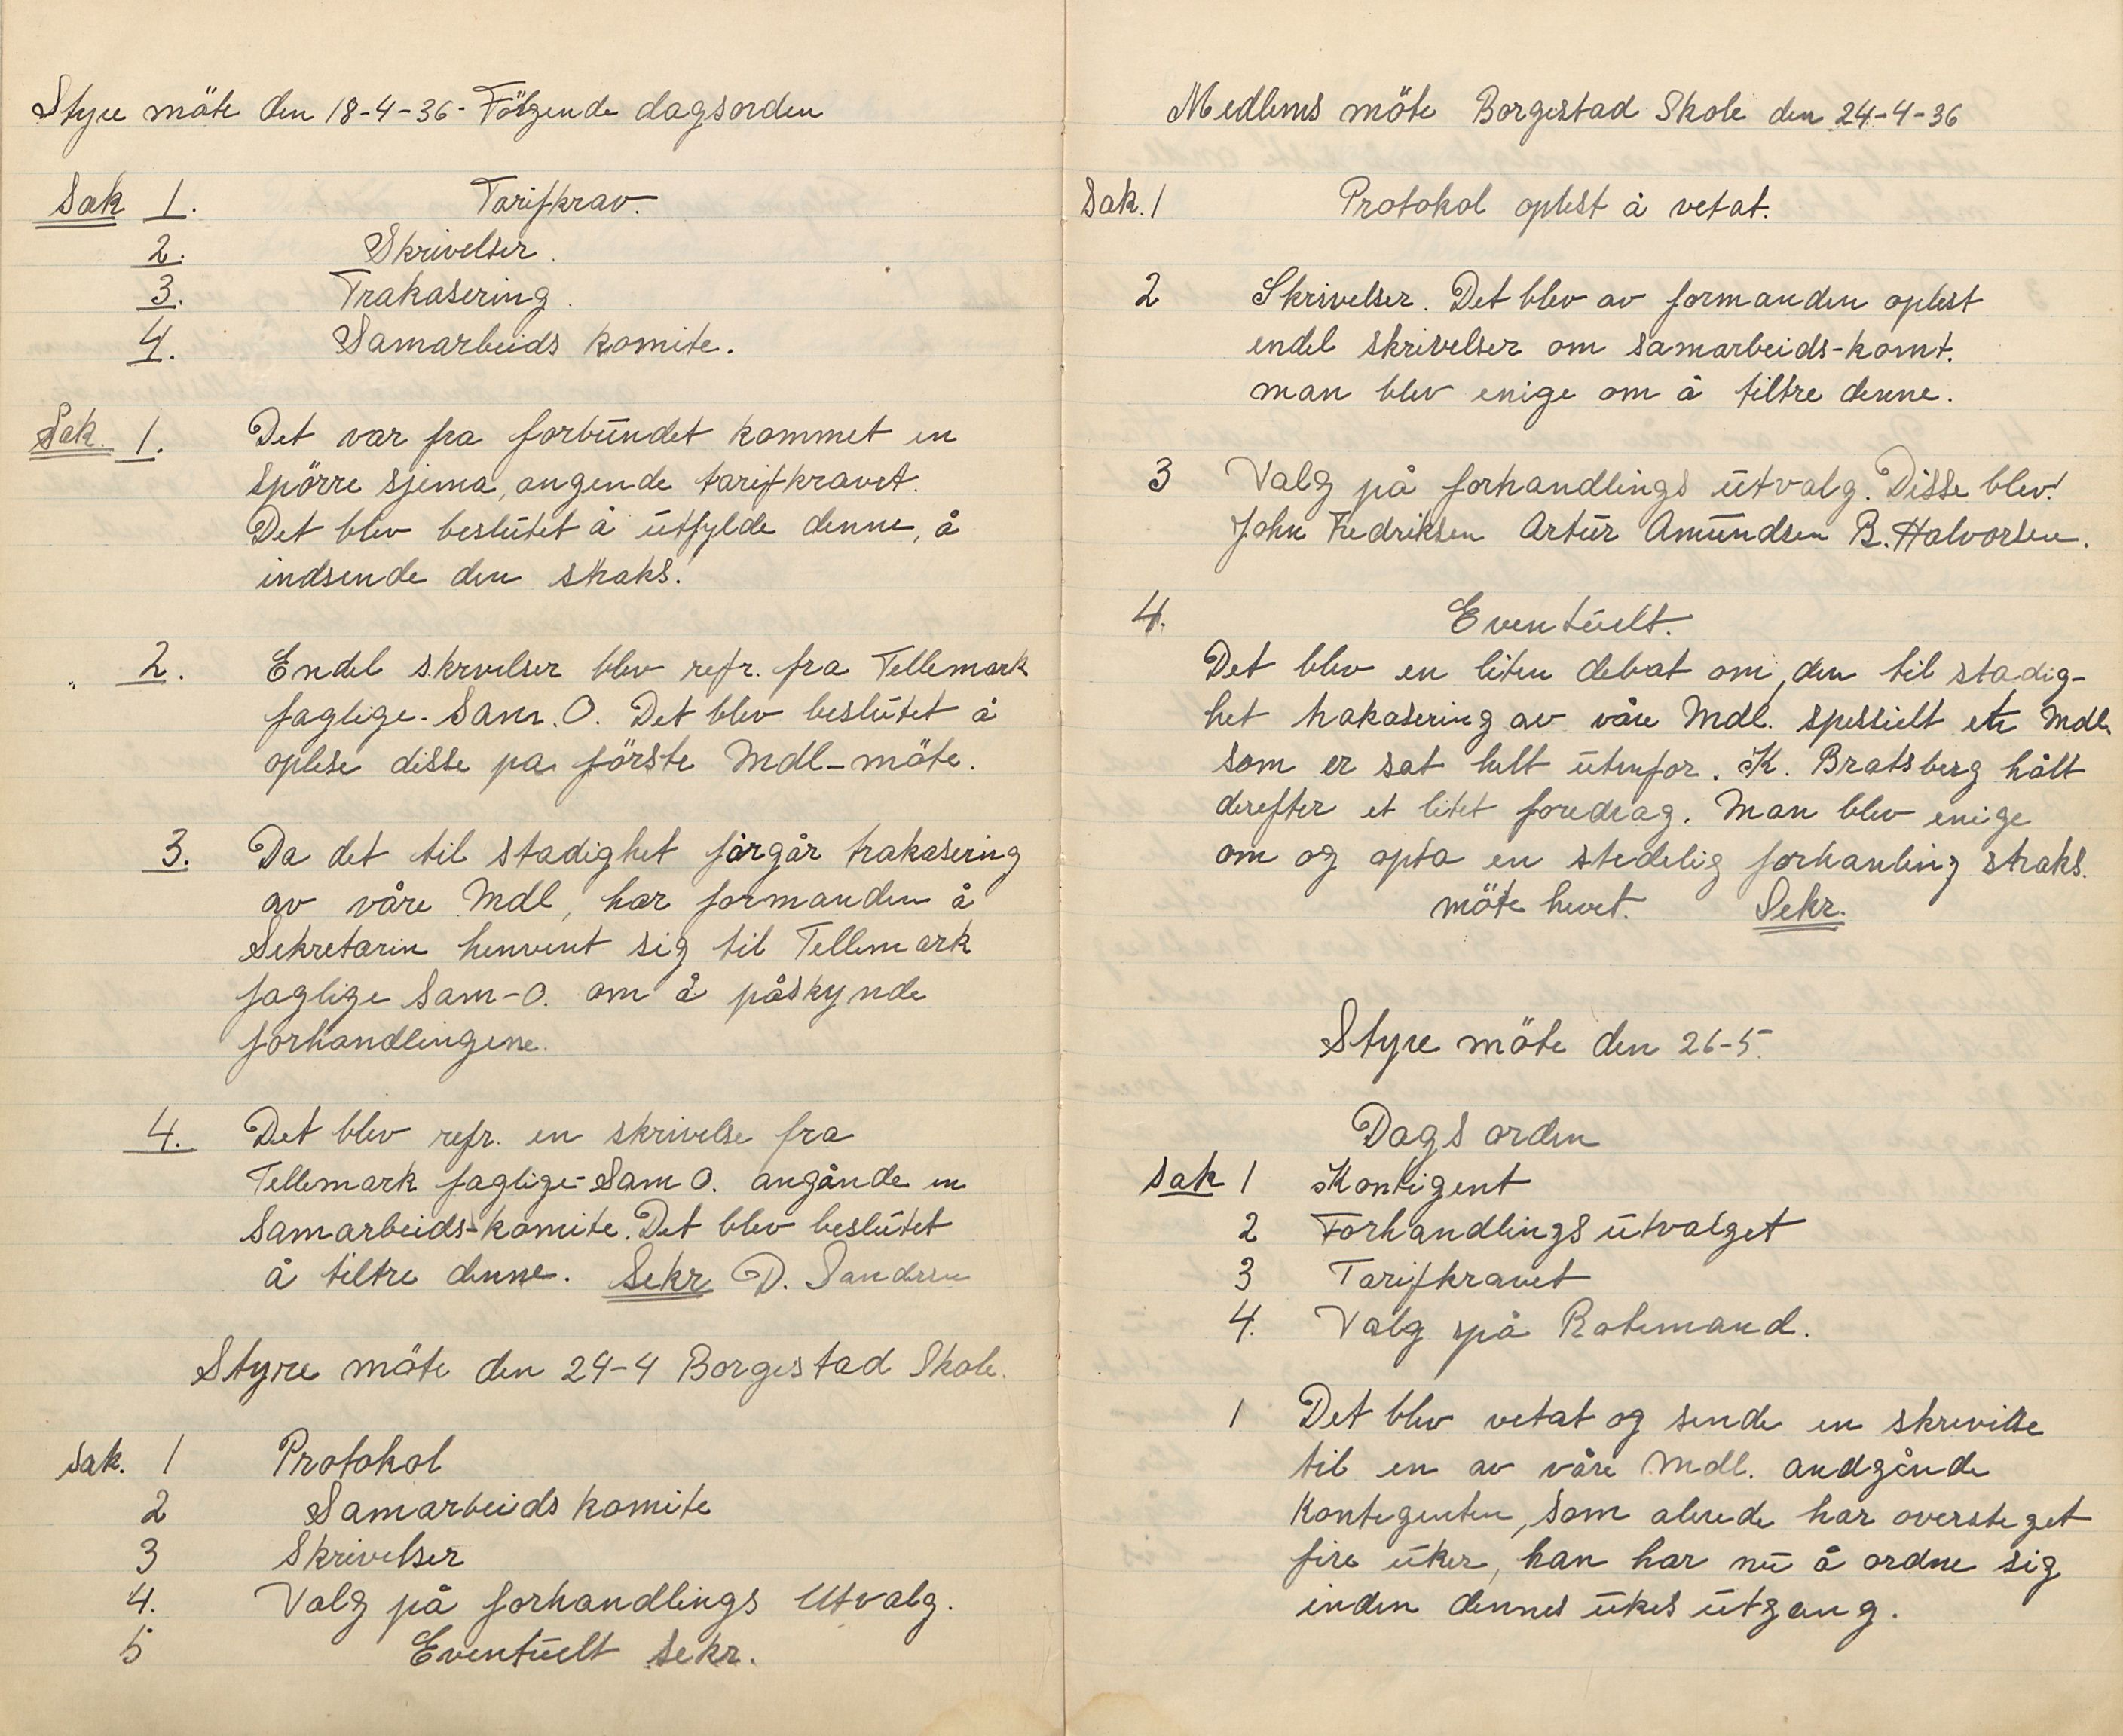 Styre möte den 18-4-36- Fölgende dagsorden
Sak 1. Tarifkrav.
2. Skrivelser.
3. Trakasering.
4. Samarbeids komite.
Sak. 1. Det var fra forbundet kommet en
spörre sjema, angende tarifkravet.
Det blev beslutet å utfylde denne, å
indsende den straks.
2. Endel skrvelser blev refr. fra Tellemark
faglige. Sam. O. Det blev beslutet å
oplese disse pa förste Mdl-möte.
3. Da det til stadighet forgår trakasering
av våre Mdl, har formanden å
Sekretærin henvent sig til Tellemark
faglige Sam-O. om å påskynde
forhandlingene.
4. Det blev refr. en skrivelse fra
Tellemark faglige-Sam O. angånde en
Samarbeids-komite. Det blev beslutet
å tiltre denne. Sekr D. Sandersen
Styre möte den 24-4 Borgestad Skole.
Sak. 1 Protokol
2 Samarbeids komite
3 Skrivelser
4. Valg på forhandlings Utvalg.
5 Eventuelt Sekr.
Medlems möte Borgestad Skole den 24-4-36
Sak. 1 Protokol oplest å vetat.
2 Skrivelser. Det blev av formanden oplest
endel skrivelser om samarbeids-komt.
man blev enige om å tiltre denne.
3 Valg på forhandlings utvalg. Disse blev!
John Fredriksen Artur Amundsen B. Halvorsen.
4. Eventuelt.
Det blev en liten debat om, den til stadig-
het trakasering av våre Mdl. spessielt et Mdl.
som er sat helt utenfor. K. Bratsberg hålt
derefter et litet foredrag. Man blev enige
om og opta en stedelig forhanling straks.
möte hevet. Sekr.
Styre möte den 26-5.
Dags orden
Sak 1 Kontigent
2 Forhandlings utvalget
3 Tarifkravet
4. Valg på Rotemand.
1 Det blev vetat og sende en skrevilse
til en av våre Mdl. andgånde
Kontegenten, som alerede har oversteget
fire uker, han har nu å ordne sig
inden dennes ukes utgang.